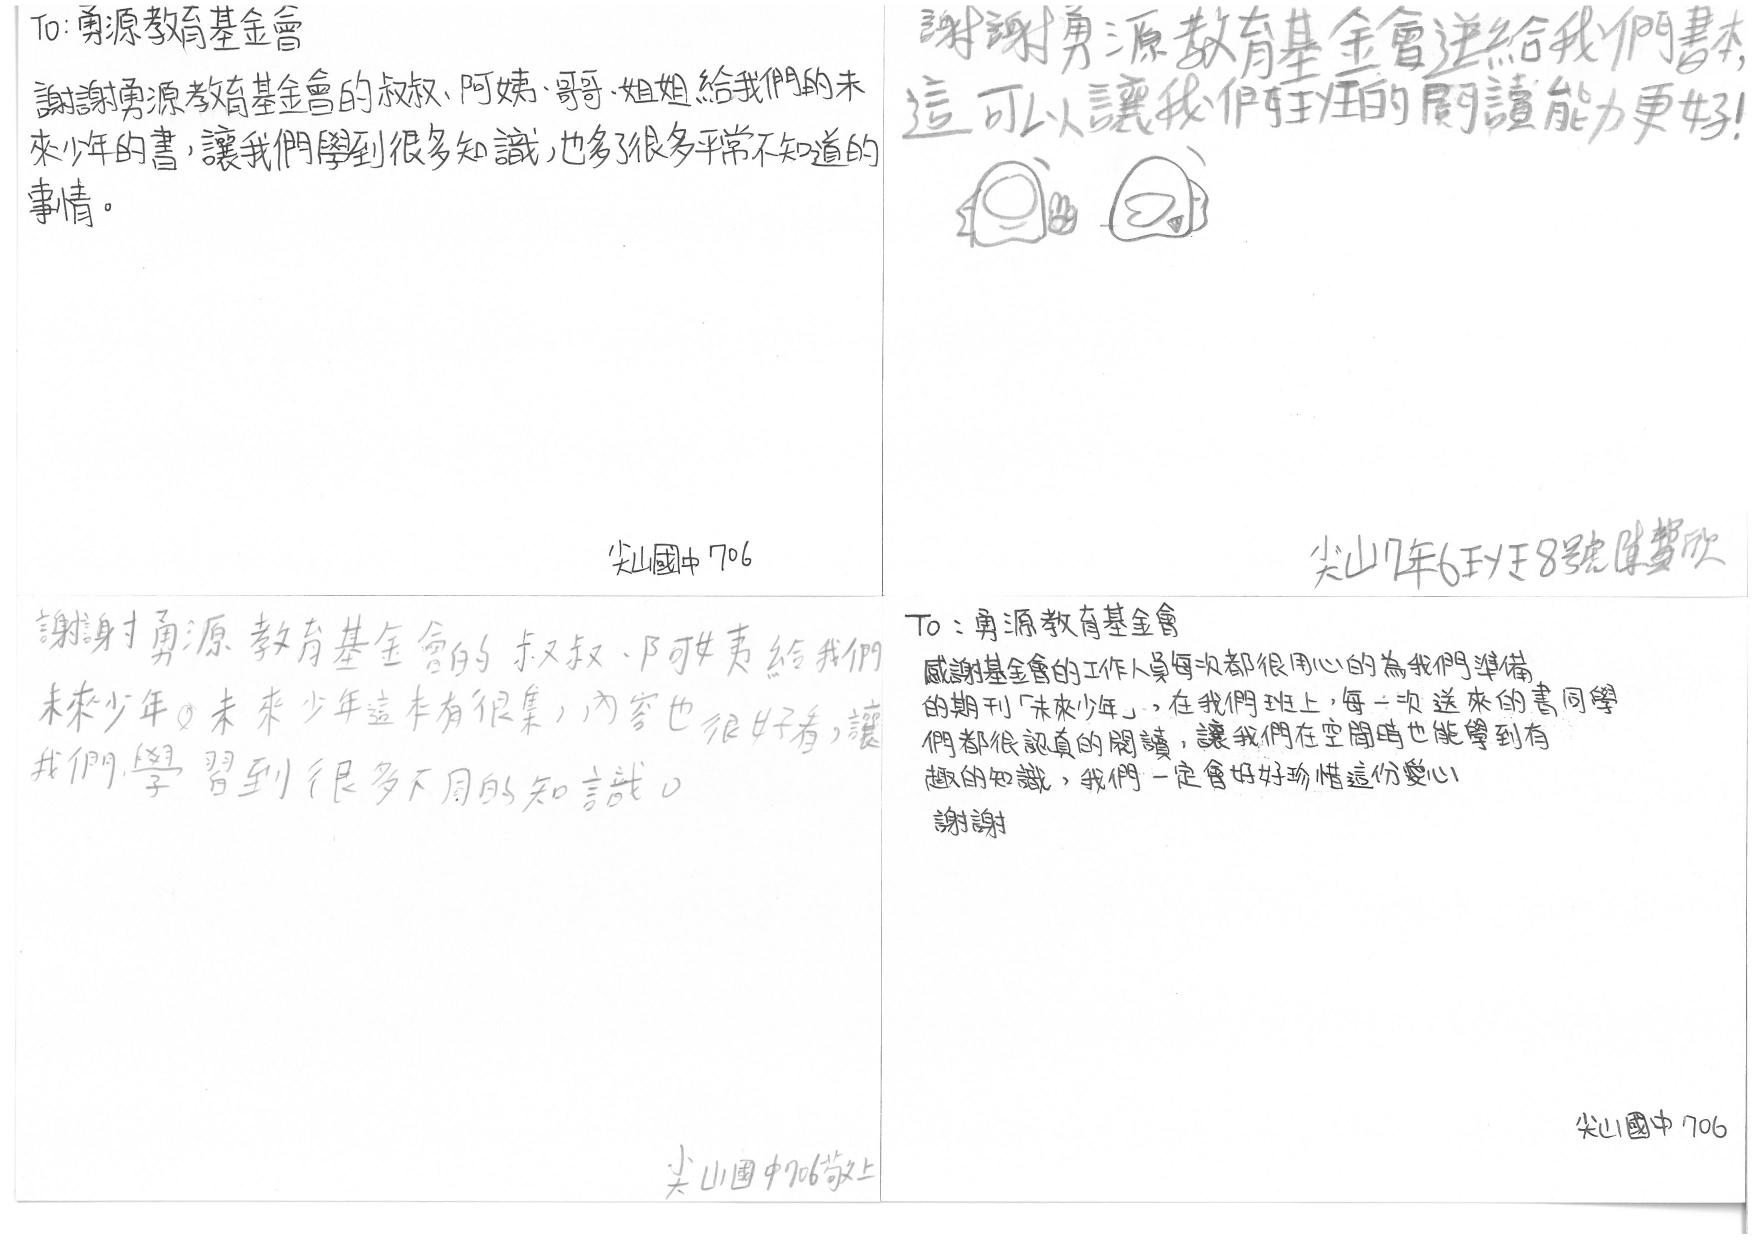 To:勇源教育基金會
謝謝勇源教育基金會的叔叔、阿姨、哥哥、姐姐給我們的未
來少年的書,讓我們學到很多知識,也多了很多平常不知道的
事情。
尖山國中706
謝謝勇源教育基金會送給我們書本,
這可以讓我們班的閱讀能力更好!
尖山7年6班8號陳欣
謝謝勇源教育基金會的叔叔、阿姨給我們
未來少年。未來少年這本有很集,內容也很好看,讓
我們學習到很多不同的知識。
尖山國中706敬上
To:勇源教育基金會
感謝基金會的工作人員每次都很用心的為我們準備
的期刊「未來少年」,在我們班上,每一次送來的書同學
們都很認真的閱讀,讓我們在空閒時也能學到有
趣的知識,我們一定會好好珍惜這份愛心
謝謝
尖山國中706